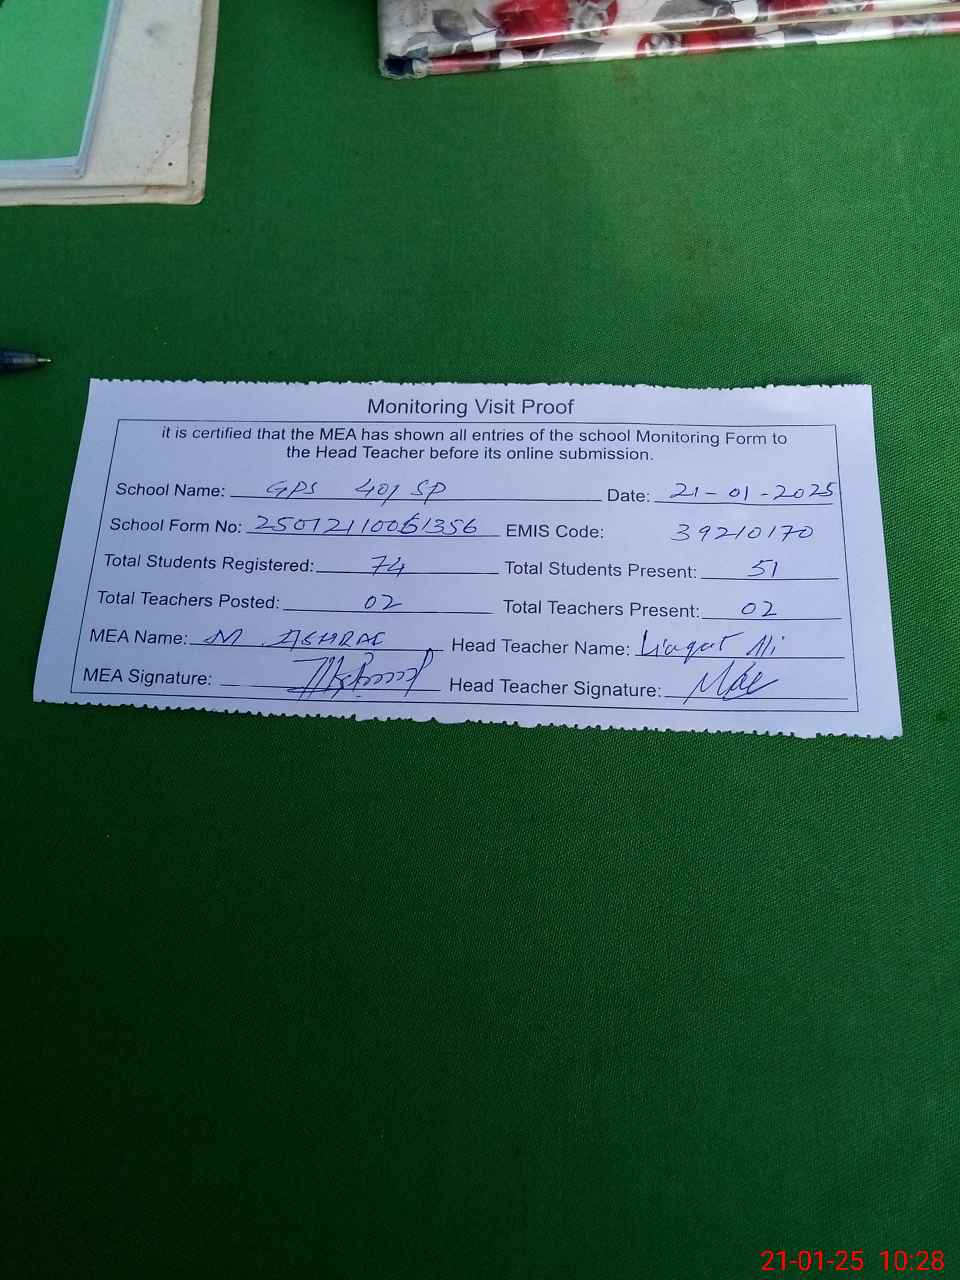 Monitoring Visit Proof
it is certified that the MEA has shown all entries of the school Monitoring Form to
the Head Teacher before its online submission.
School Name: GPS 401 SP Date: 21-01-2025
School Form No: EMIS Code: 39210170
Total Students Registered: 74 Total Students Present: 51
Total Teachers Posted: 02 Total Teachers Present: 02
MEA Name: M ASHRAF Head Teacher Name: Liaqat Ali
MEA Signature: Head Teacher Signature:
21-01-25 10:28